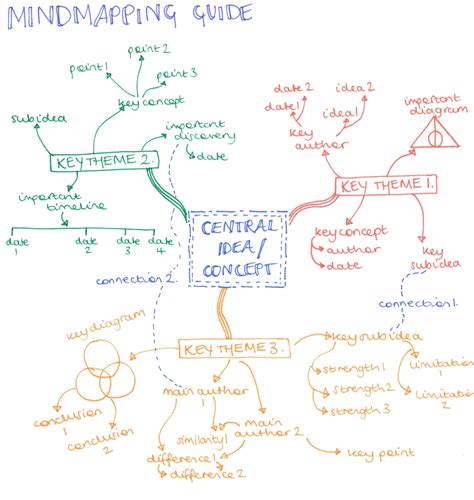 MINDMAPPING GUIDE
point 1
point 2
point 3
key concept
subidea
important
discovery
date
KEY THEME 2.
important
timeline
date
1
date
2
date
3
date
4
date 2
idea 2
date 1
idea 1
key
author
important
diagram
KEY THEME 1.
key concept
author
date
key
subidea
CENTRAL
IDEA/
CONCEPT
connection 2.
connection 1.
KEY THEME 3.
key diagram
conclusion
1
conclusion
2
main author
1
similarity 1
main
author 2
difference 1
difference 2
key point
key subidea
strength 1
strength 2
strength 3
limitation
1
limitation
2